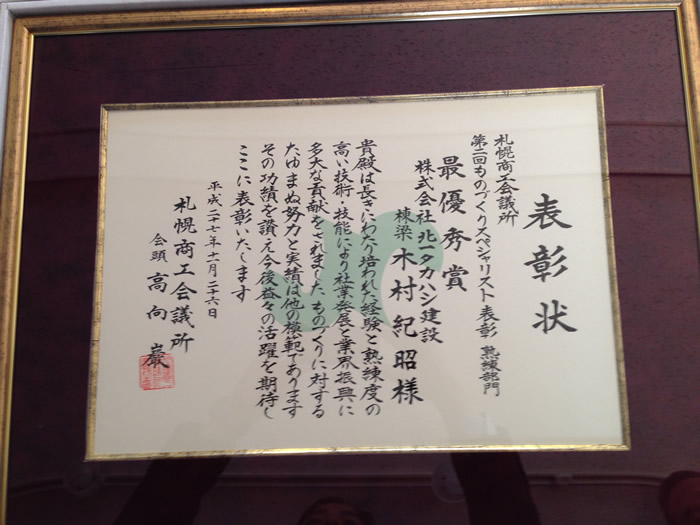 表彰状
札幌商工会議所
第二回ものづくりスペシャリスト表彰 熟練部門
最優秀賞
株式会社 北一タカハシ建設
棟梁 木村紀昭様
貴殿は長きにわたり培われた経験と熟練度の
高い技術・技能により社業発展と業界振興に
多大な貢献をされました ものづくりに対する
たゆまぬ努力と実績は他の模範であります
その功績を讃え今後益々の活躍を期待し
ここに表彰いたします
平成二十七年十一月二十六日
札幌商工会議所
会頭 高向巖